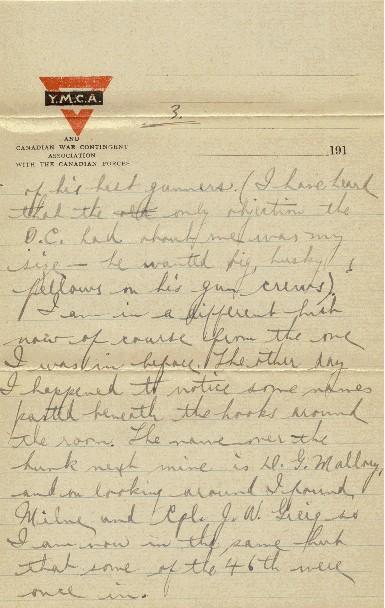 Y.M.C.A.
AND
CANADIAN WAR CONTINGENT
ASSOCIATION
WITH THE CANADIAN FORCES
3.
191
of his best gunners. (I have heard
that the only objection the
O.C. had about me was my
size – he wanted big, husky
fellows on his gun crews).
I am in a different hut
now of course from the one
I was in before. The other day
I happened to notice some names
pasted beneath the hooks around
the room. The name over the
bunk next mine is D. G. Mallory,
and on looking around I found
Milne and Cpl. J. W. Greig so
I am now in the same hut
that some of the 46th were
once in.